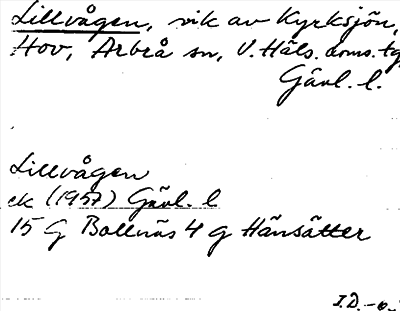 Lillvågen, vik av Kyrksjön,
Hov, Arbrå sn, V. Häls. doms. tg
Gävl. l.
Lillvågen
ek (1957) Gävl. l
15 G Bollnäs 4 g Hänsätter
I.D.